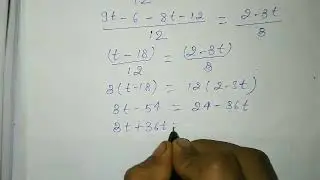 12
9t - 6 - 8t - 12 / 12 = 2 - 3t / 3
(t - 18) / 12 = (2 - 3t) / 3
3(t - 18) = 12(2 - 3t)
3t - 54 = 24 - 36t
3t + 36t =